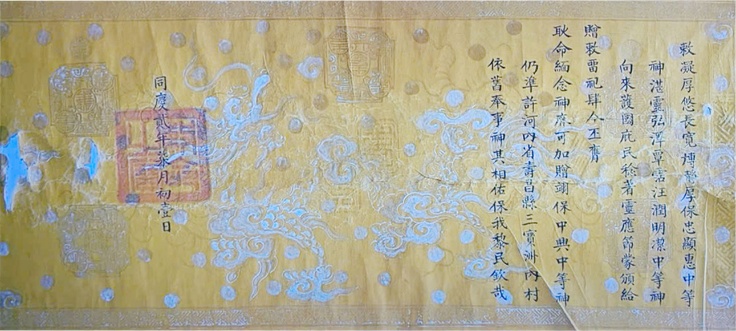 敕凝厚悠長寬煙靜厚保忠顯惠中等
神湛靈弘澤覃霈汪潤明潔中等神
向來護國庇民稔著靈應節蒙頒給
贈敕留祀肆今丕膺
耿命緬念神庥可加贈翊保中興中等神
仍準許河內省壽昌縣三寶洲內村
依舊奉事神其相佑保我黎民欽哉
同慶貳年柒月初壹日